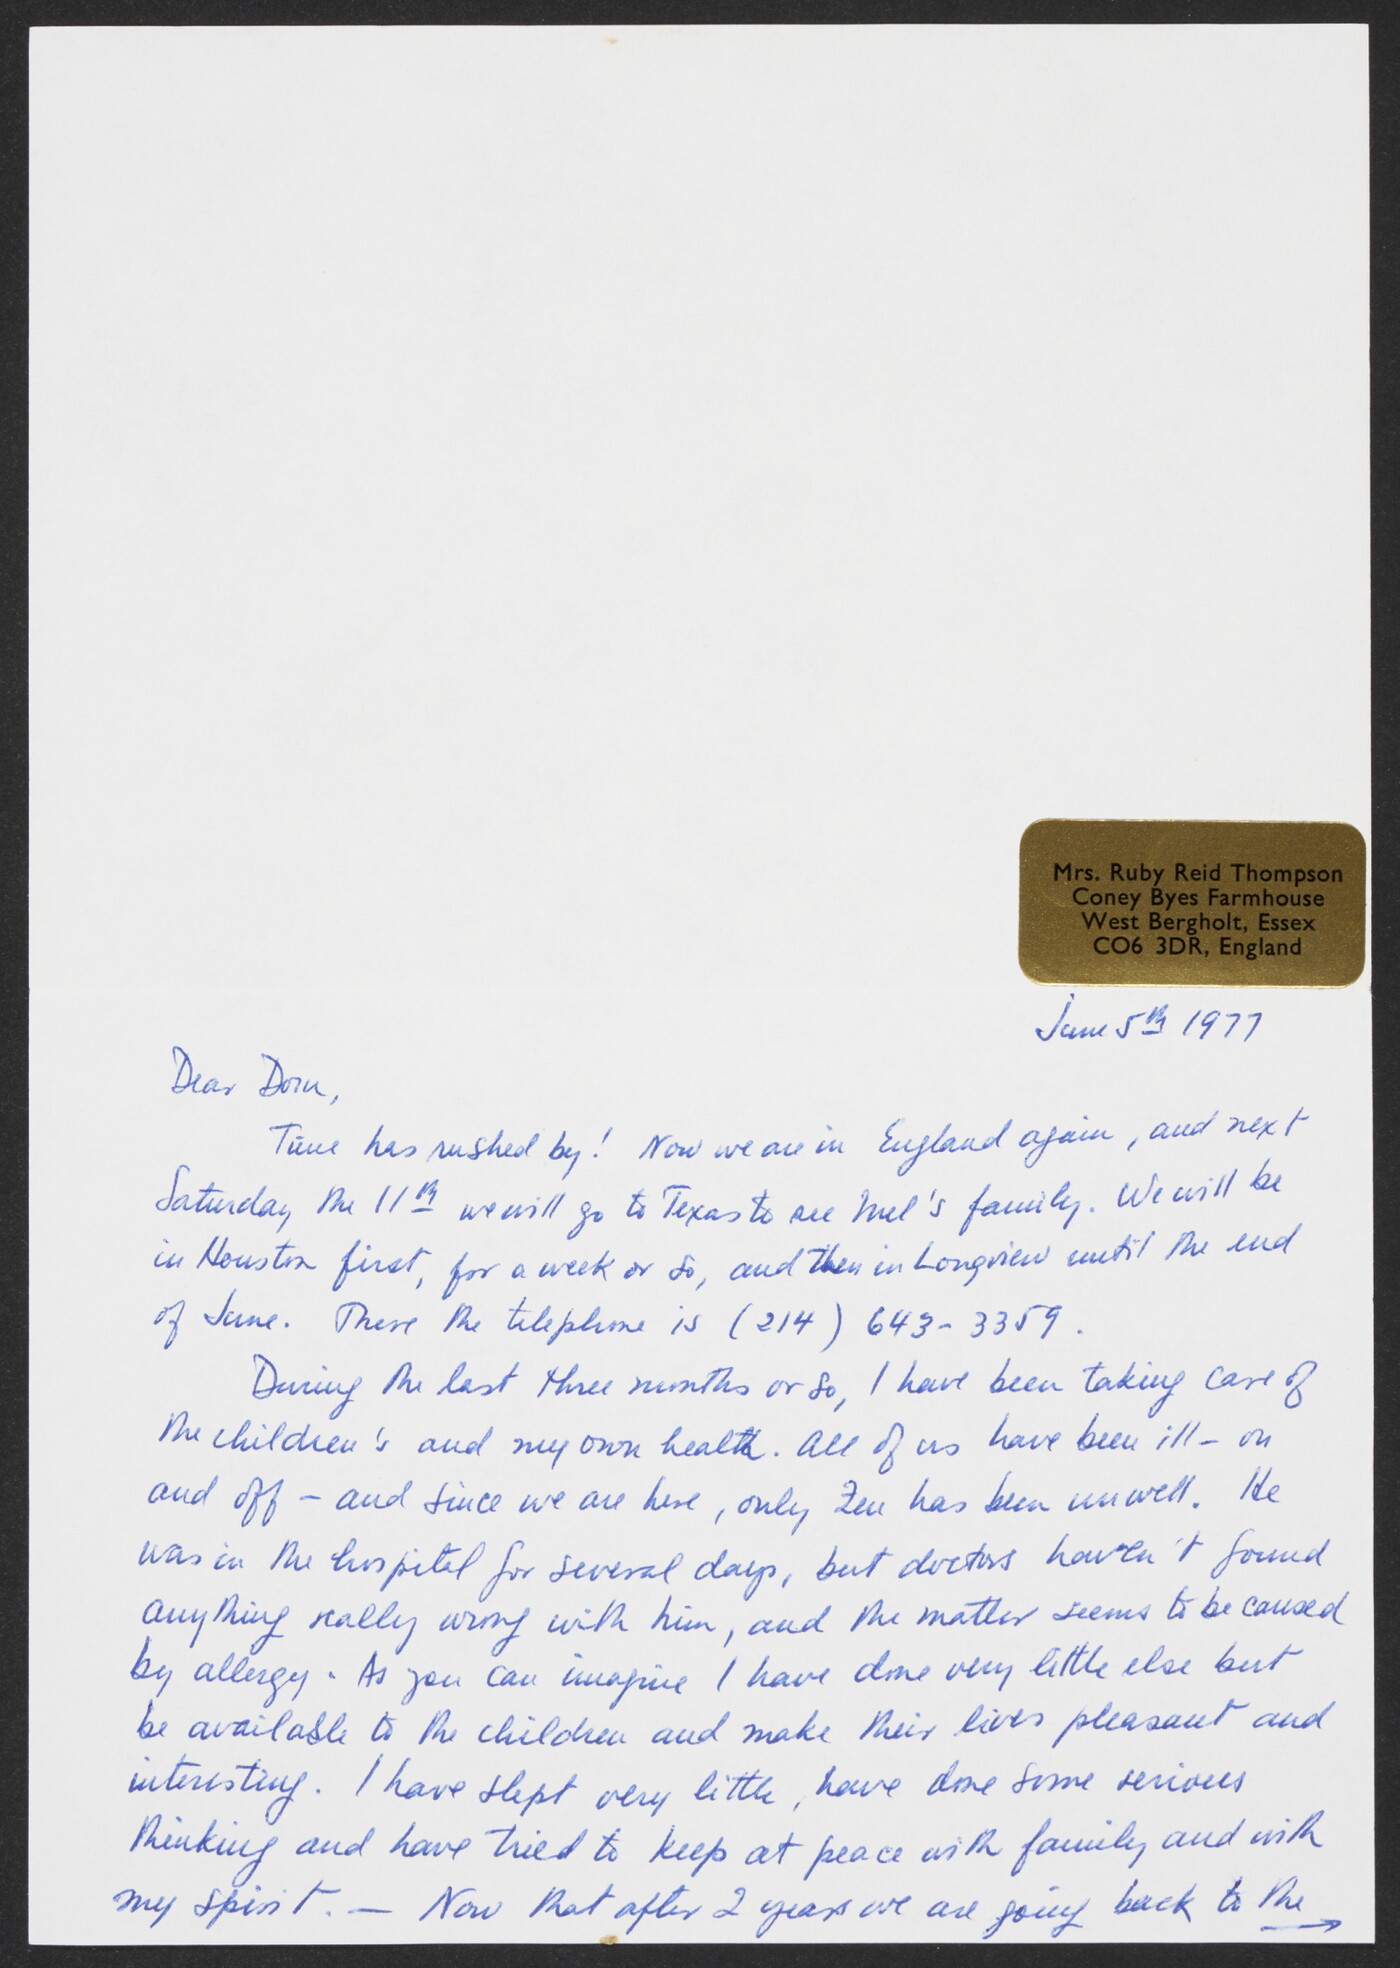 Mrs. Ruby Reid Thompson
Coney Byes Farmhouse
West Bergholt, Essex
CO6 3DR, England
June 5th 1977
Dear Dorn,
Time has rushed by! Now we are in England again, and next
Saturday the 11th we will go to Texas to see Mel's family. We will be
in Houston first, for a week or so, and then in Longview until the end
of June. There the telephone is (214) 643-3359.
During the last three months or so, I have been taking care of
the children's and my own health. All of us have been ill - on
and off - and since we are here, only Zen has been unwell. He
was in the hospital for several days, but doctors haven't found
anything really wrong with him, and the matter seems to be caused
by allergy. As you can imagine I have done very little else but
be available to the children and make their lives pleasant and
interesting. I have slept very little, have done some serious
thinking and have tried to keep at peace with family and with
my spirit. — Now that after 2 years we are going back to the →